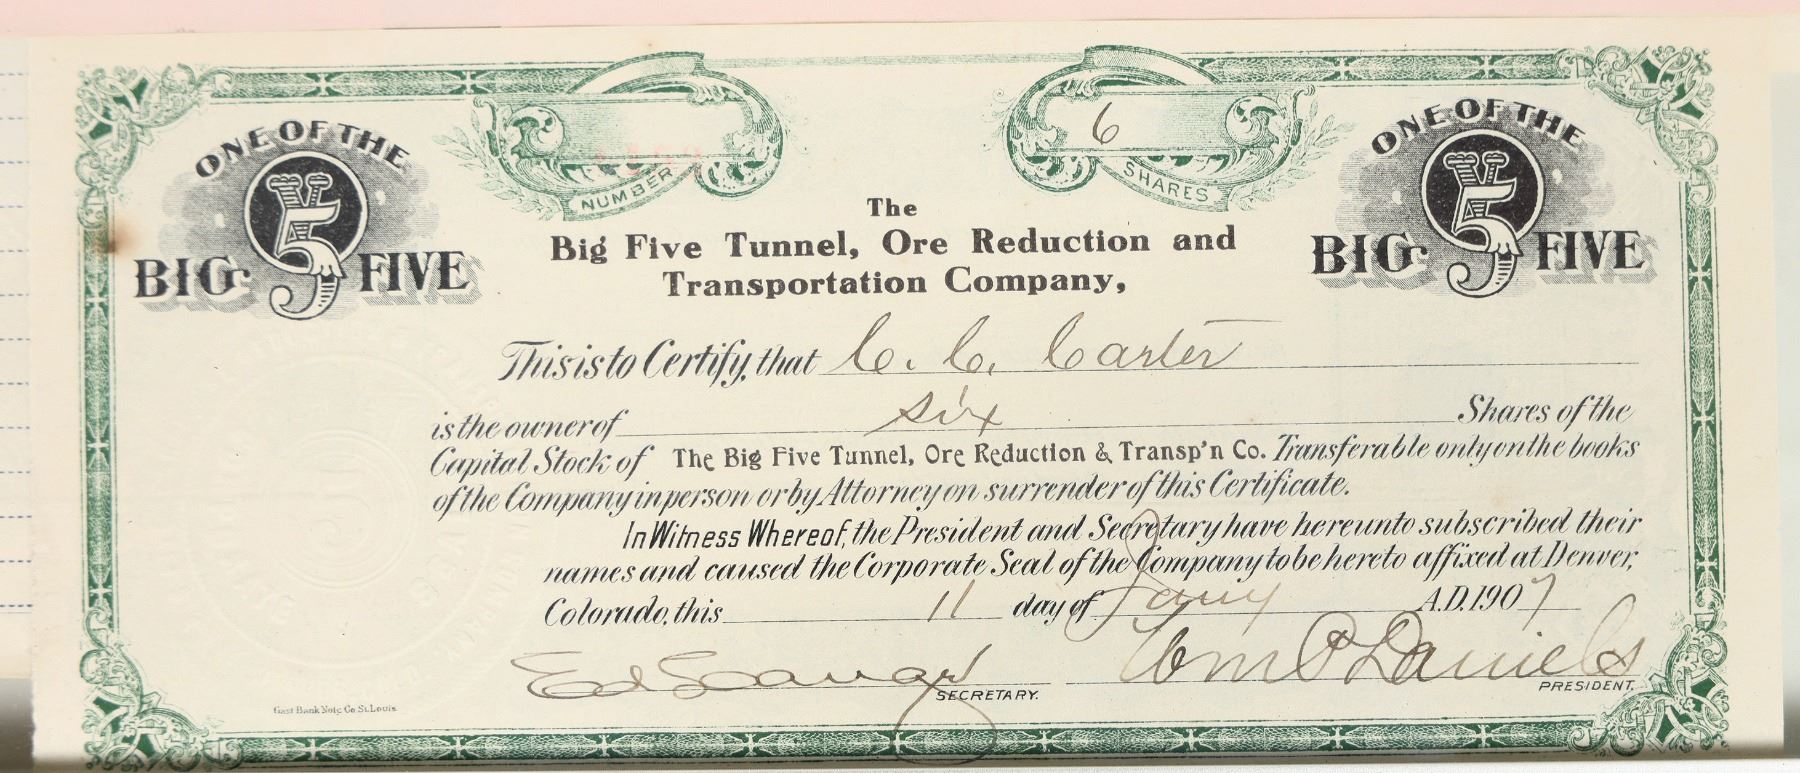 ONE OF THE
BIG 5 FIVE
NUMBER
6
SHARES
ONE OF THE
BIG 5 FIVE
The
Big Five Tunnel, Ore Reduction and
Transportation Company,
This is to Certify, that C. C. Carter
is the owner of six Shares of the
Capital Stock of The Big Five Tunnel, Ore Reduction & Transp'n Co. Transferable only on the books
of the Company in person or by Attorney on surrender of this Certificate.
In Witness Whereof, the President and Secretary have hereunto subscribed their
names and caused the Corporate Seal of the Company to be hereto affixed at Denver,
Colorado, this 11 day of Jany A.D. 1907
Wm P Daniels
SECRETARY.
PRESIDENT.
Gast Bank Note Co St. Louis